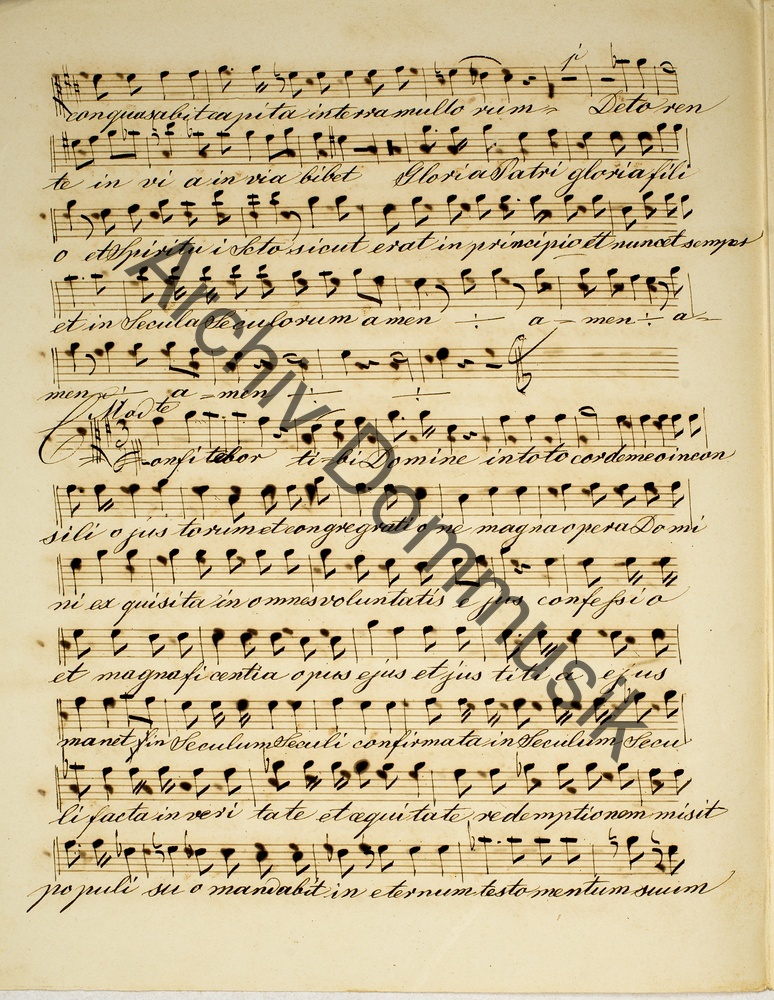 conquasabit capita in terra multo rum = De to ren
te in vi a in via bibet Gloria Patri gloria fili
o et Spiritu i Scto sicut erat in principio et nunc et semper
et in Secula Seculorum amen ÷ a = men ÷ a =
men ÷ a = men ÷ ÷
Modte
Confitebor ti-bi Domine in toto corde meo in con
sili o jus torum et congregrati o ne magna opera Domi
ni ex quisita in omnes voluntatis e jus confessi o
et magnaficentia opus ejus et jus titi a ejus
manet in Seculum Seculi confirmata in Seculum Secu
li facta in veri tate et æquitate redemptionem misit
po puli su o mandabit in eternum testo mentum suum
Archiv Dommusik